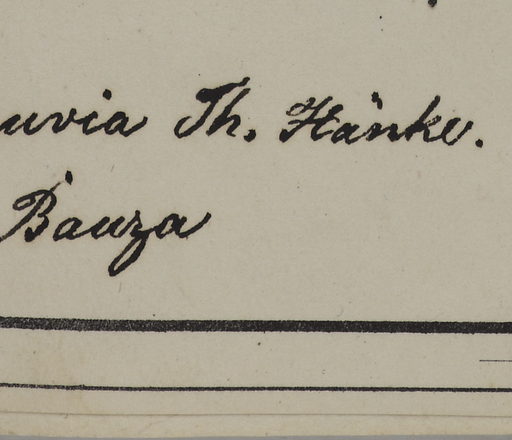 uvia Th. Hänke.
Bauza